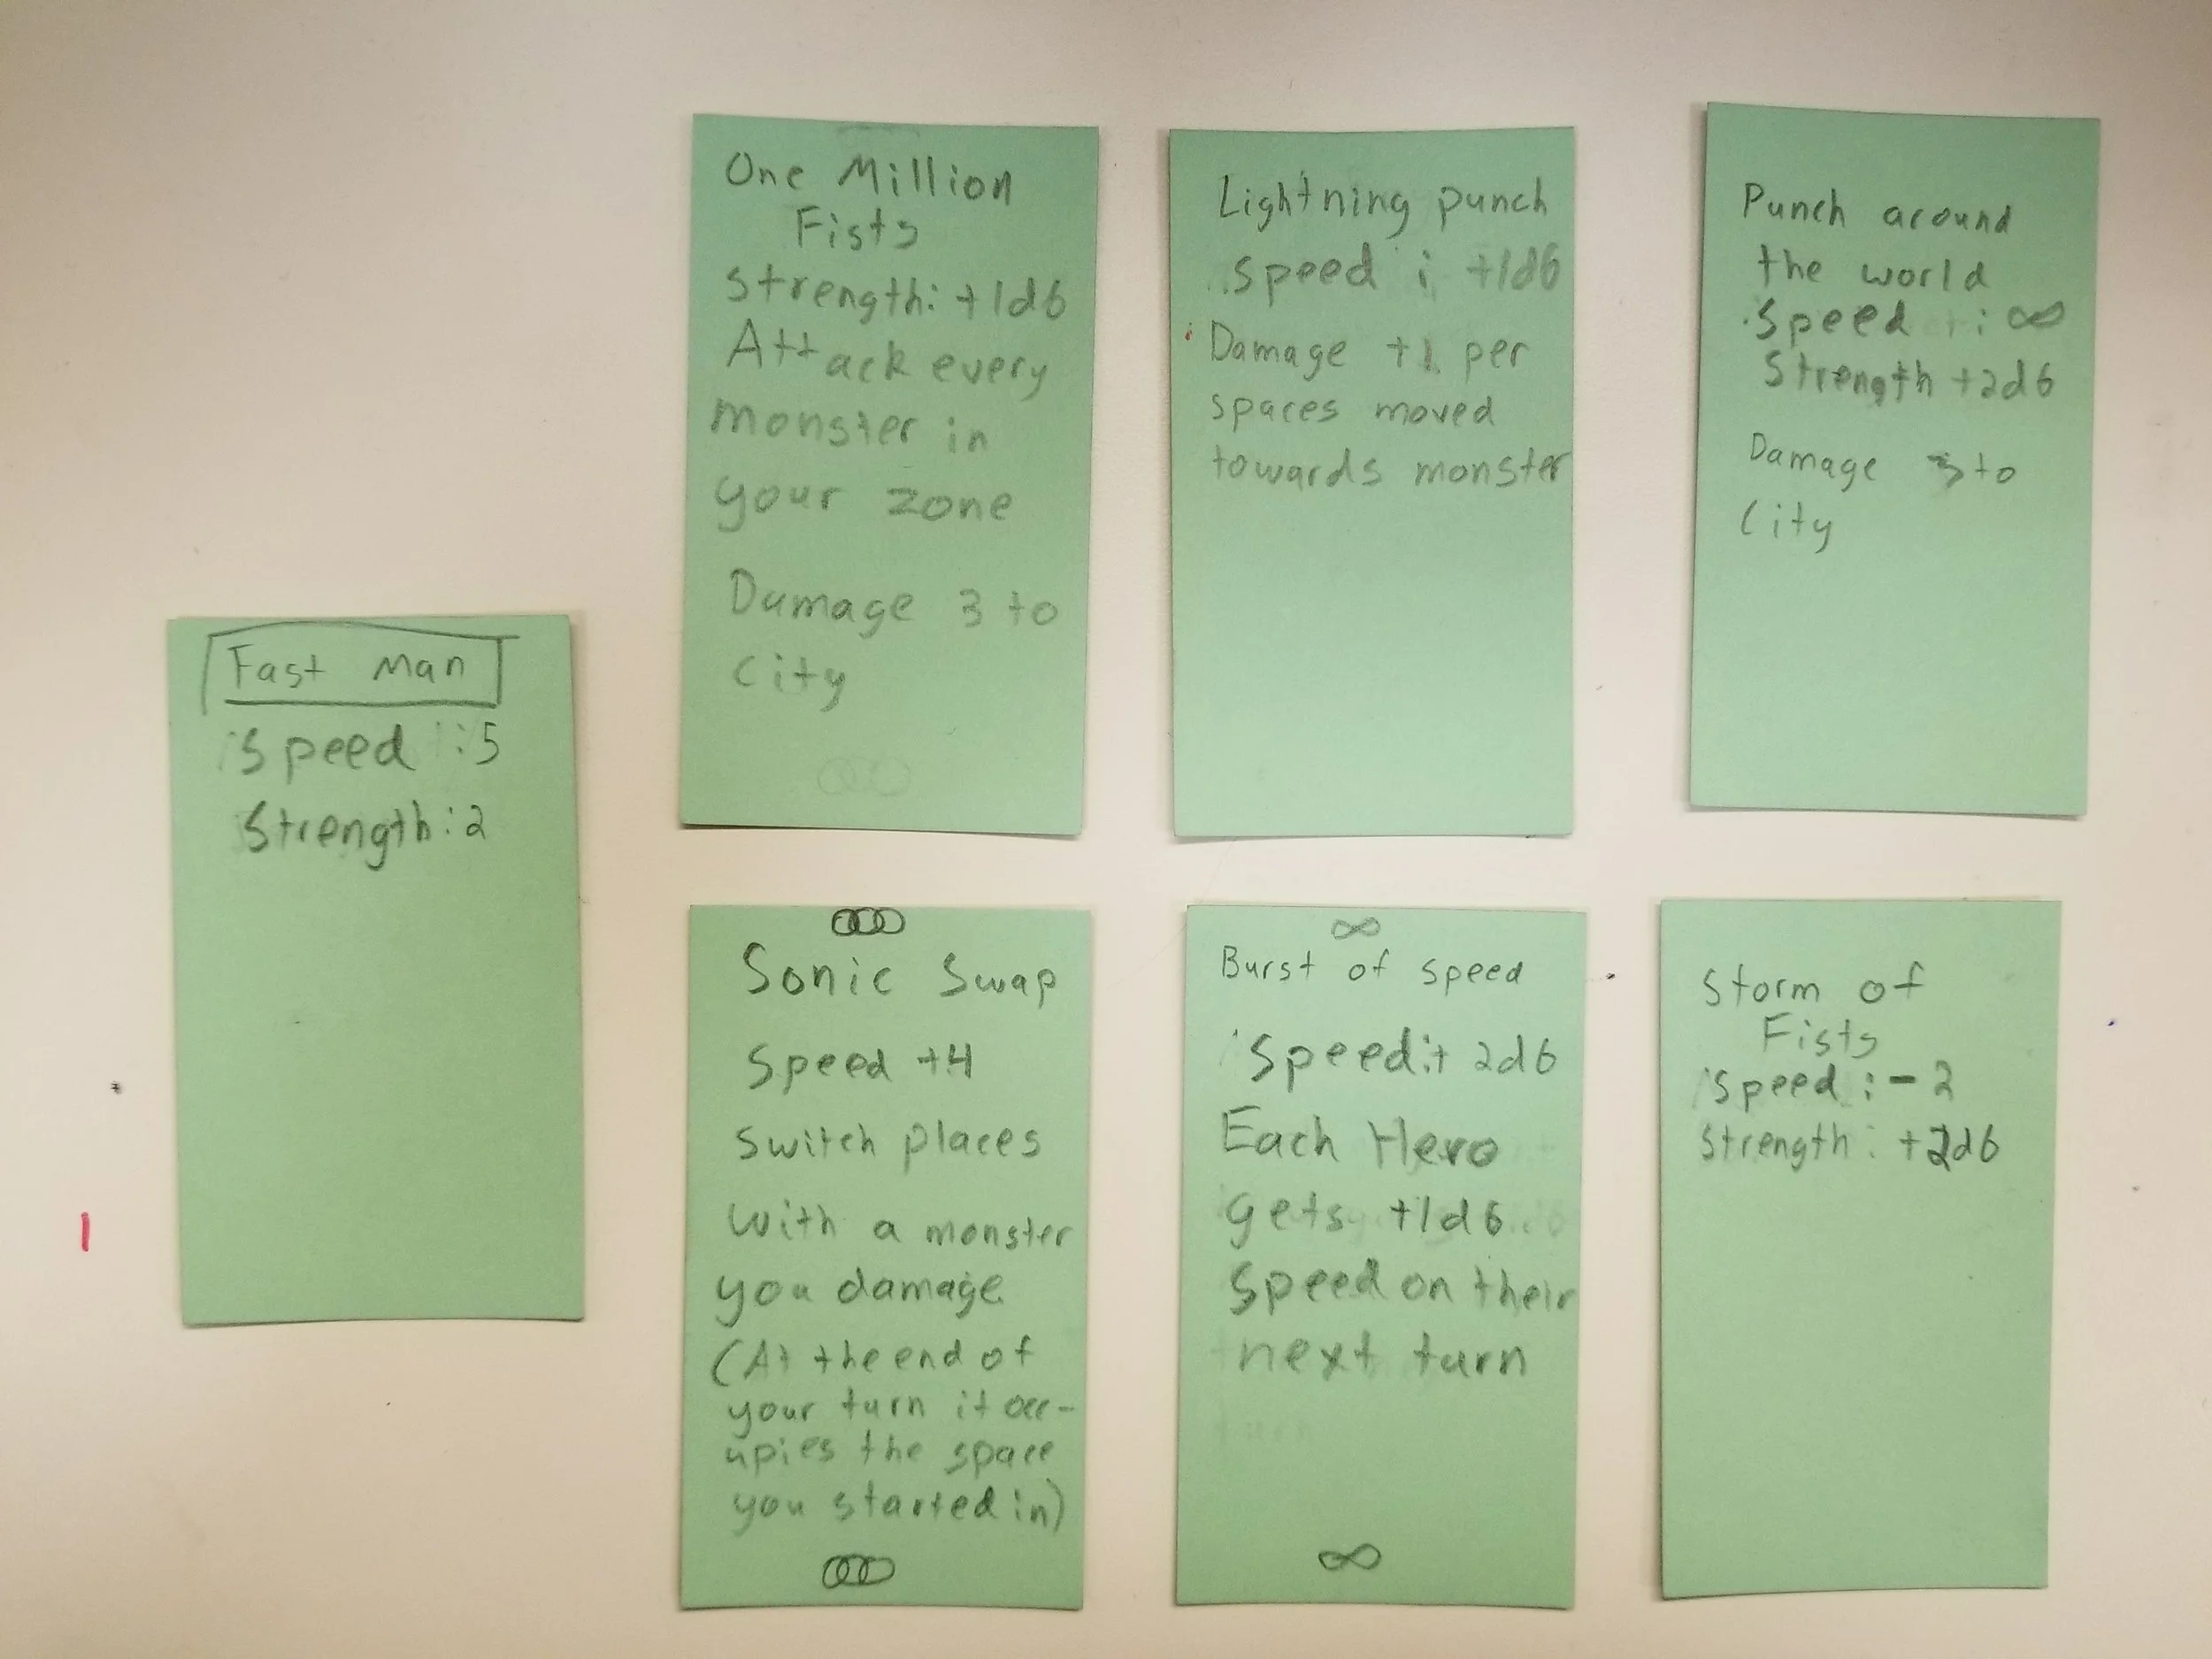 Fast Man
Speed : 5
Strength : 2
One Million
Fists
Strength: +1d6
Attack every
monster in
your zone
Damage 3 to
City
Lightning punch
Speed : +1d6
Damage +1 per
spaces moved
towards monster
Punch around
the world
Speed : ∞
Strength +2d6
Damage 3 to
City
Sonic Swap
Speed +4
Switch places
with a monster
you damage
(At the end of
your turn it occ-
upies the space
you started in)
∞
Burst of speed
Speed:+ 2d6
Each Hero
gets +1d6
Speed on their
next turn
∞
Storm of
Fists
Speed : -2
Strength : +2d6